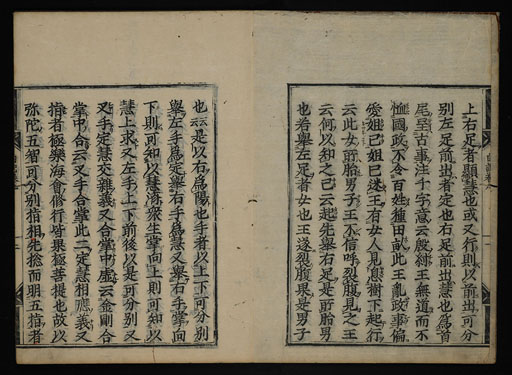 上右足者顯慧也或又行則以前出可分
別左足前出者定也右足前出慧也爲首
尾至古事注千字意云殷紂王無道而不
恤國政不令百姓種田畝此王亂政事偏
愛妲己妲己謎王有女人見息樹下起行
云此女所胎男子王不信呼裂腹見之王
云何以知之己云起先擧右足是所胎男
也若擧左足者女也王遂裂腹果是男子
也云云是以右爲陽也手者以上下可分別
擧左手爲定擧右手爲慧又擧右手掌向
下則可知以慧濟衆生掌向上則可知以
慧上求又左手上下前後以是可分別又
又手定慧交雜義又合掌中虛云金剛合
掌中合云云又手合掌此二定慧相應義又
指者極樂海會修行皆果極菩提也故以
弥陀五智可分別指相先捻而朋五指者